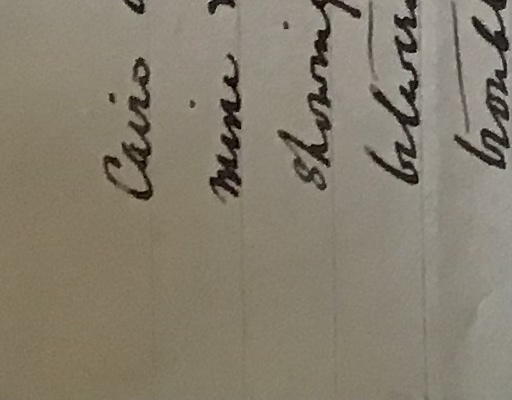 Cairo
mine
showing
between
troubl